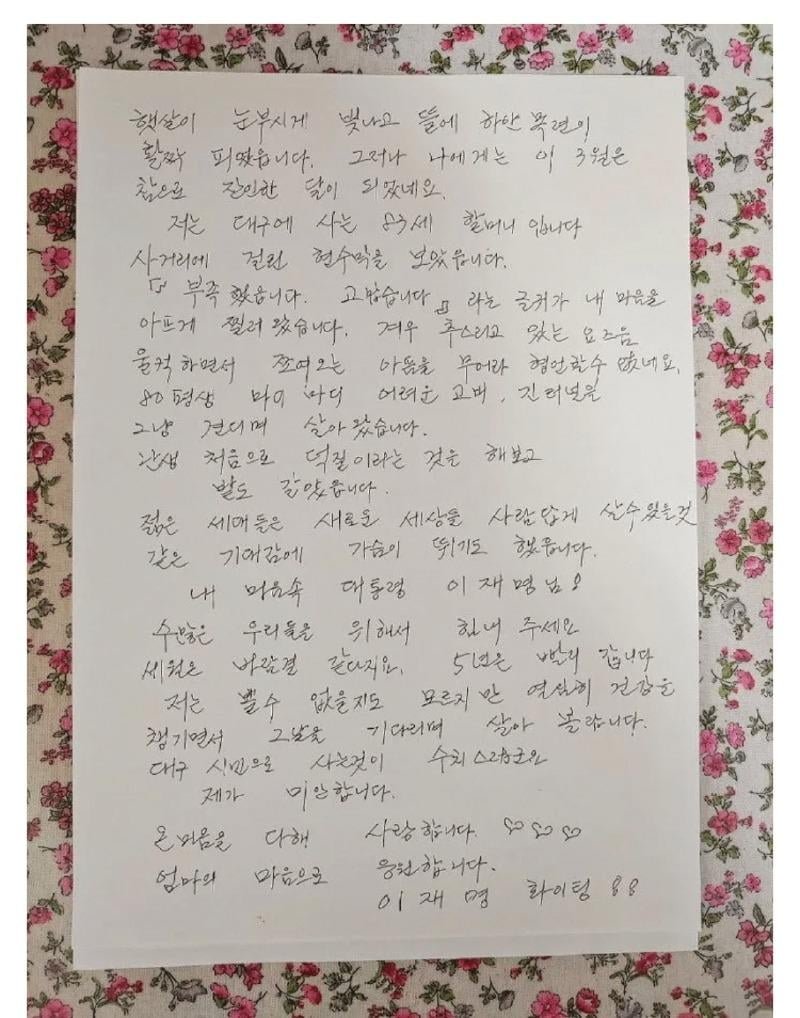 햇살이 눈부시게 빛나고 뜰에 하얀 목련이
활짝 피였읍니다. 그러나 나에게는 이 3월은
참으로 잔인한 달이 되었네요.
저는 대구에 사는 83세 할머니 입니다
사거리에 걸린 현수막을 보았읍니다.
『부족했읍니다. 고맙습니다』라는 글귀가 내 마음을
아프게 찔러 왔습니다. 겨우 추스리고 있는 요즈음
울컥 하면서 쪼여오는 아픔을 무어라 형언할수 없네요.
80평생 마디 마디 어려운 고비, 긴 터널을
그냥 견디며 살아 왔습니다.
난생 처음으로 덕질이라는 것을 해보고
밤도 같았읍니다.
젊은 세대들은 새로운 세상을 사람답게 살수있을것
같은 기대감에 가슴이 뛰기도 했읍니다.
내 마음속 대통령 이재명님!
수많은 우리들을 위해서 힘내 주세요
세월은 바람결 같다지요. 5년은 빨리 갑니다
저는 뵐수 없을지도 모르지만 열심히 건강을
챙기면서 그날을 기다리며 살아 볼랍니다.
대구 시민으로 사는것이 수치스럽군요
제가 미안합니다.
온마음을 다해 사랑합니다. ♡♡♡
엄마의 마음으로 응원합니다.
이재명 화이팅!!